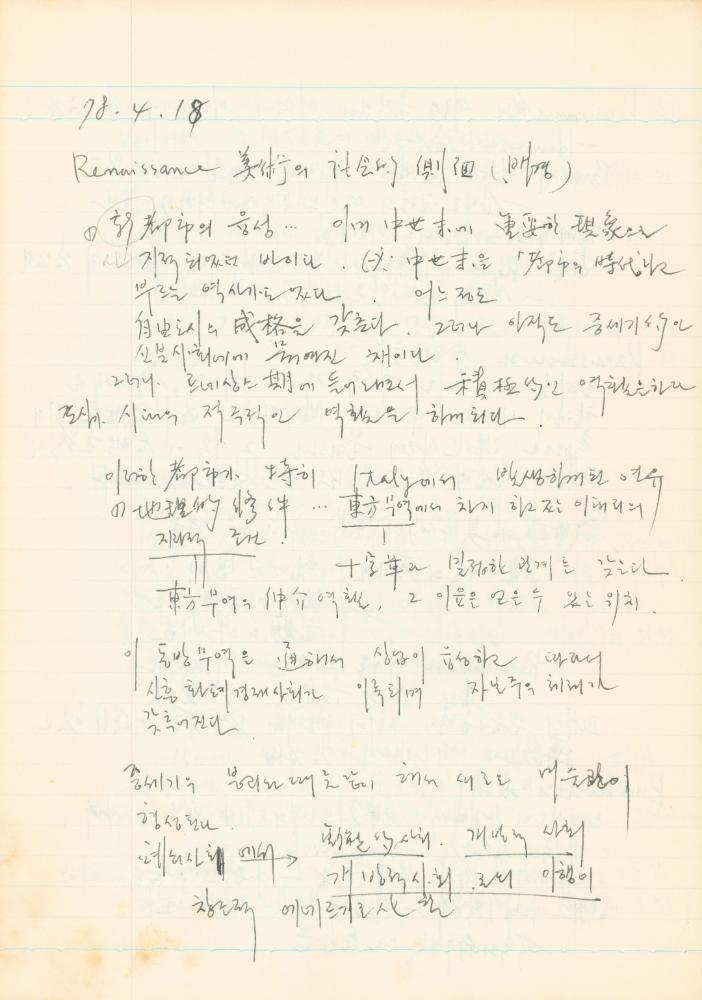 78. 4. 18
Renaissance 美術의 社会的 側面 (배경)
① 新都市의 융성 … 이미 中世末에 重要한 現象으로
지적되었던 바이다. 中世末을 「都市의 時代」라고
부르는 역사가도 있다. 어느정도
自由도시의 成格을 갖춘다. 그러나 아직도 중세기的인
신분사회내에 묶여진 채이다.
그러나. 르네상스期에 들어와서 積極的인 역할을한다
도시가 시대의 적극적인 역할을 하게된다.
이러한 都市가 特히 Italy에서 발생하게된 연유
地理的 條件 … 東方무역에서 차지하고 있는 이태리의
지리적 조건.
十字軍과 밀접한 관계를 갖는다.
東方무역의 仲介역할, 그 이윤을 얻을 수 있는 위치.
이 동방무역을 通해서 상업이 융성하고 따라서
신흥 화폐경제사회가 이룩되며 자본주의 체제가
갖추어진다.
중세기의 분위와 때 해서 새로운
형성된다.
폐쇄사회에서 → 的사회. 개방적 사회
개방적사회 로의 이행이
창조적 에네르기로서